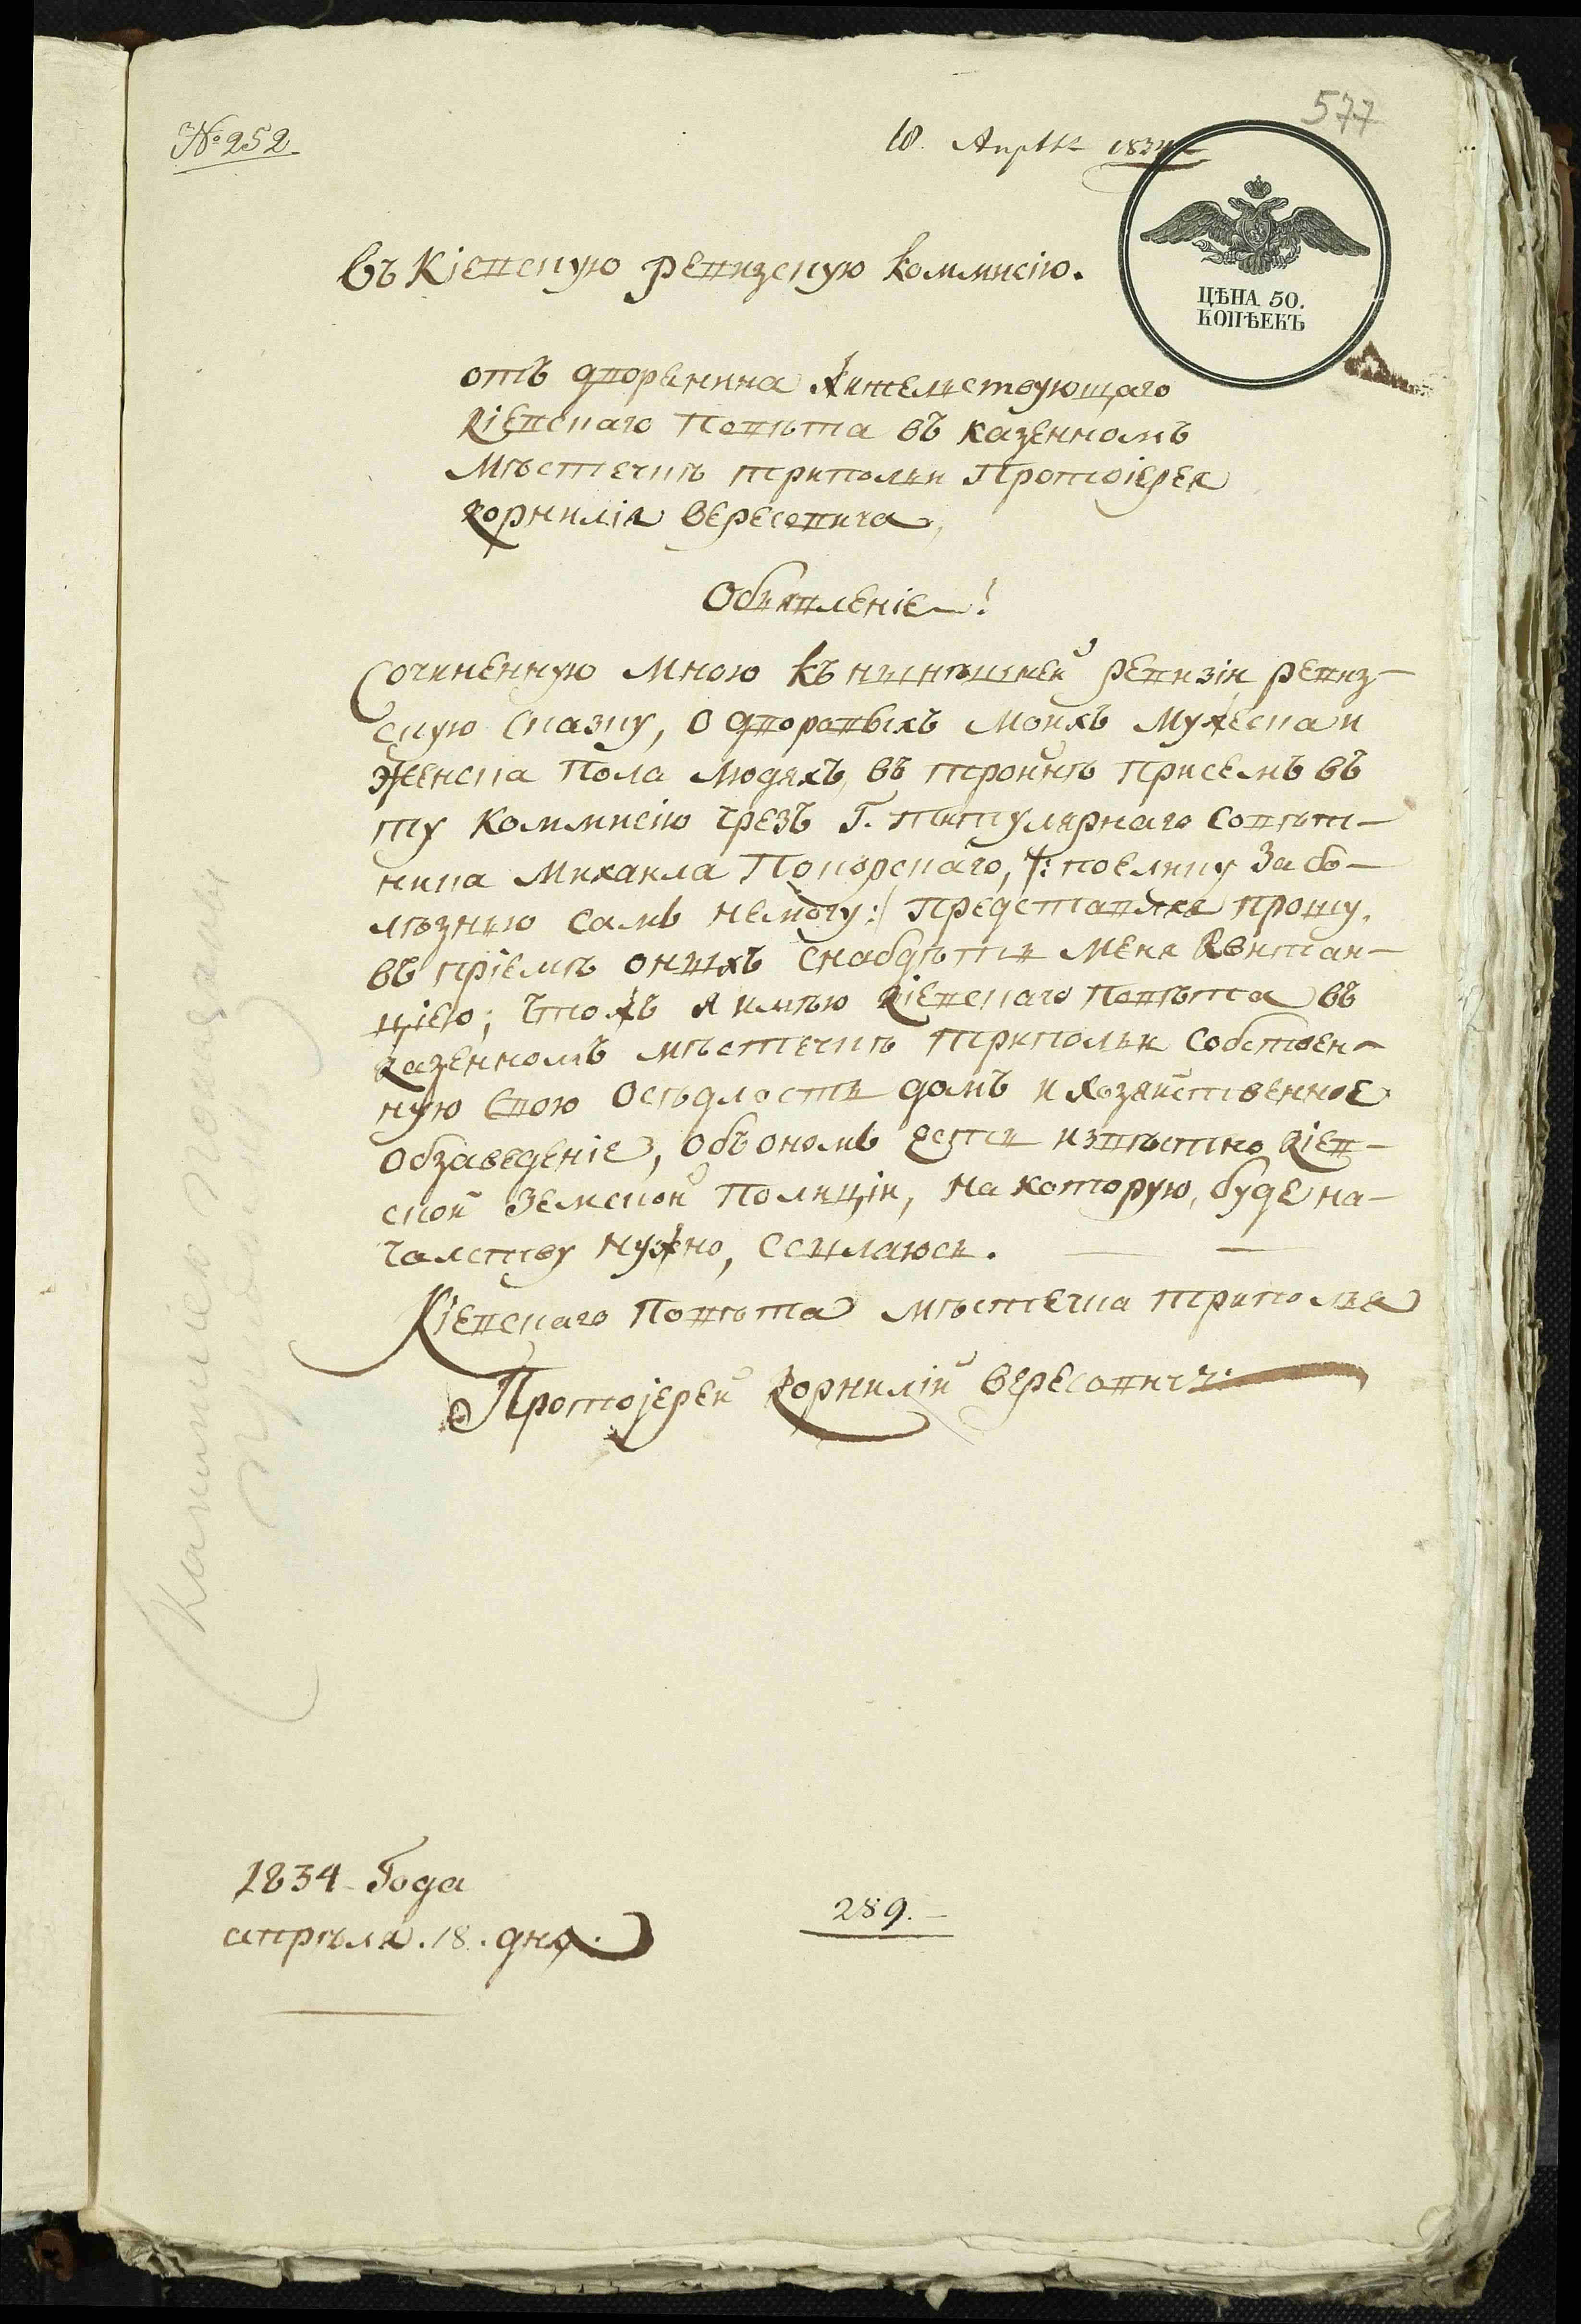 577
№ 252
18. Апрля 1834
ЦѢНА 50.
КОПѢЕКЪ
Въ Кіевскую ревизскую коммисію.
отъ дворянина жительствующаго
Кіевскаго Повѣта въ казенномъ
Мѣстечкѣ трипольи Протоіерея
Корнилія Вересовича,
Объявленіе!
Сочиненную мною къ нынѣшней ревизіи ревиз-
скую сказку, о дворовыхъ моихъ мужеска и
женска Пола людяхъ, въ тройнѣ присемъ въ
ту коммисію чрезъ Г. титулярнаго Совѣт-
ника Михаила Покорскаго, /: поелику за бо-
лѣзнью самъ немогу :/ представляя прошу.
въ пріемѣ оныхъ снабдѣть меня Квитан-
цією; чтожъ я имѣю Кіевскаго Повѣта въ
казенномъ мѣстечкѣ трипольи собствен-
ную свою осѣдлость домъ и хозяйственное
обзаведеніе, объ ономъ есть извѣстно Кіев-
ской Земской Полиціи, на которую, буде на-
чалству нужно, ссылаюсь.
Кіевскаго Повѣта мѣстечка триполья
Протоіерей Корнилій Вересовичъ.
1834 Года
апрѣля. 18. дня.
289.